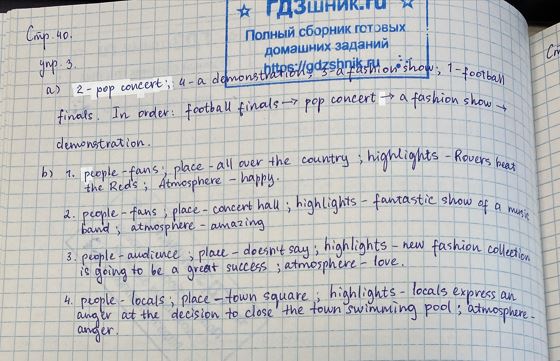 ГДЗшник.ru
Полный сборник готовых
домашних заданий
https://gdzshnik.ru
Стр. 40.
упр. 3.
a) 2-pop concert; 4-a demonstration; 3-a fashion show; 1-football
finals. In order: football finals → pop concert → a fashion show →
demonstration.
b) 1. people-fans; place-all over the country; highlights-Rovers beat
the Reds; Atmosphere-happy.
2. people-fans; place-concert hall; highlights-fantastic show of a music
band; atmosphere-amazing
3. people-audience; place-doesn't say; highlights-new fashion collection
is going to be a great success; atmosphere-love.
4. people-locals; place-town square; highlights-locals express an
anger at the decision to close the town swimming pool; atmosphere-
anger.